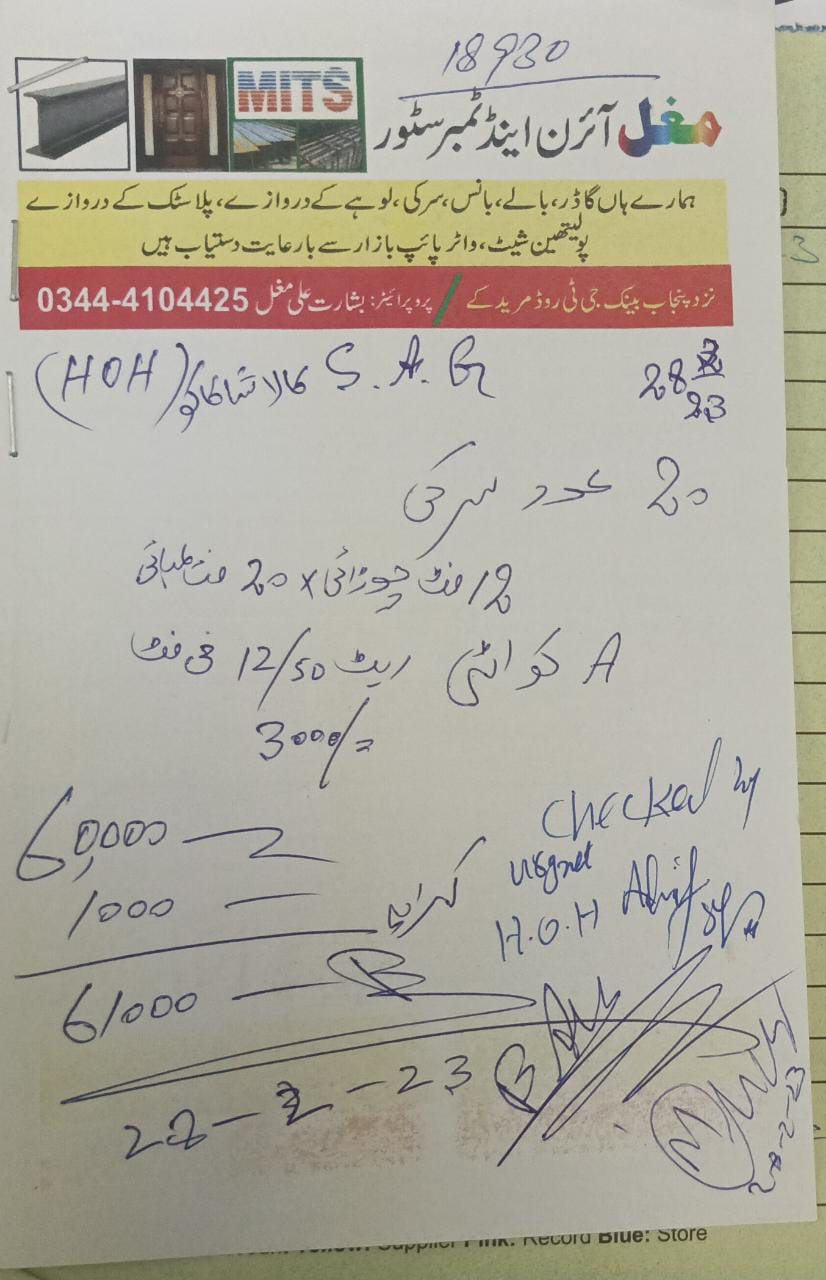 18930
MITS
مغل آئرن اینڈ ٹمبر سٹور
ہمارے ہاں گاڈر، بالے، بانس، سرکی، لوہے کے دروازے، پلاسٹک کے دروازے
پولیتھین شیٹ، واٹر پائپ بازار سے بارعایت دستیاب ہیں
نزد پنجاب بینک جی ٹی روڈ مریدکے / پروپرائیٹر: بشارت علی مغل 0344-4104425
S. A. G کالا شاہ کاکو (HOH)
28 2 23
20 عدد سرکی
12 فٹ چوڑائی x 20 فٹ لمبائی
A کوالٹی ریٹ 12/50 فی فٹ
3000/=
60,000
1000 کرایہ
61000
Checked by
H.O.H
28-2-23
28-2-23
Yellow: Supplier Pink: Record Blue: Store